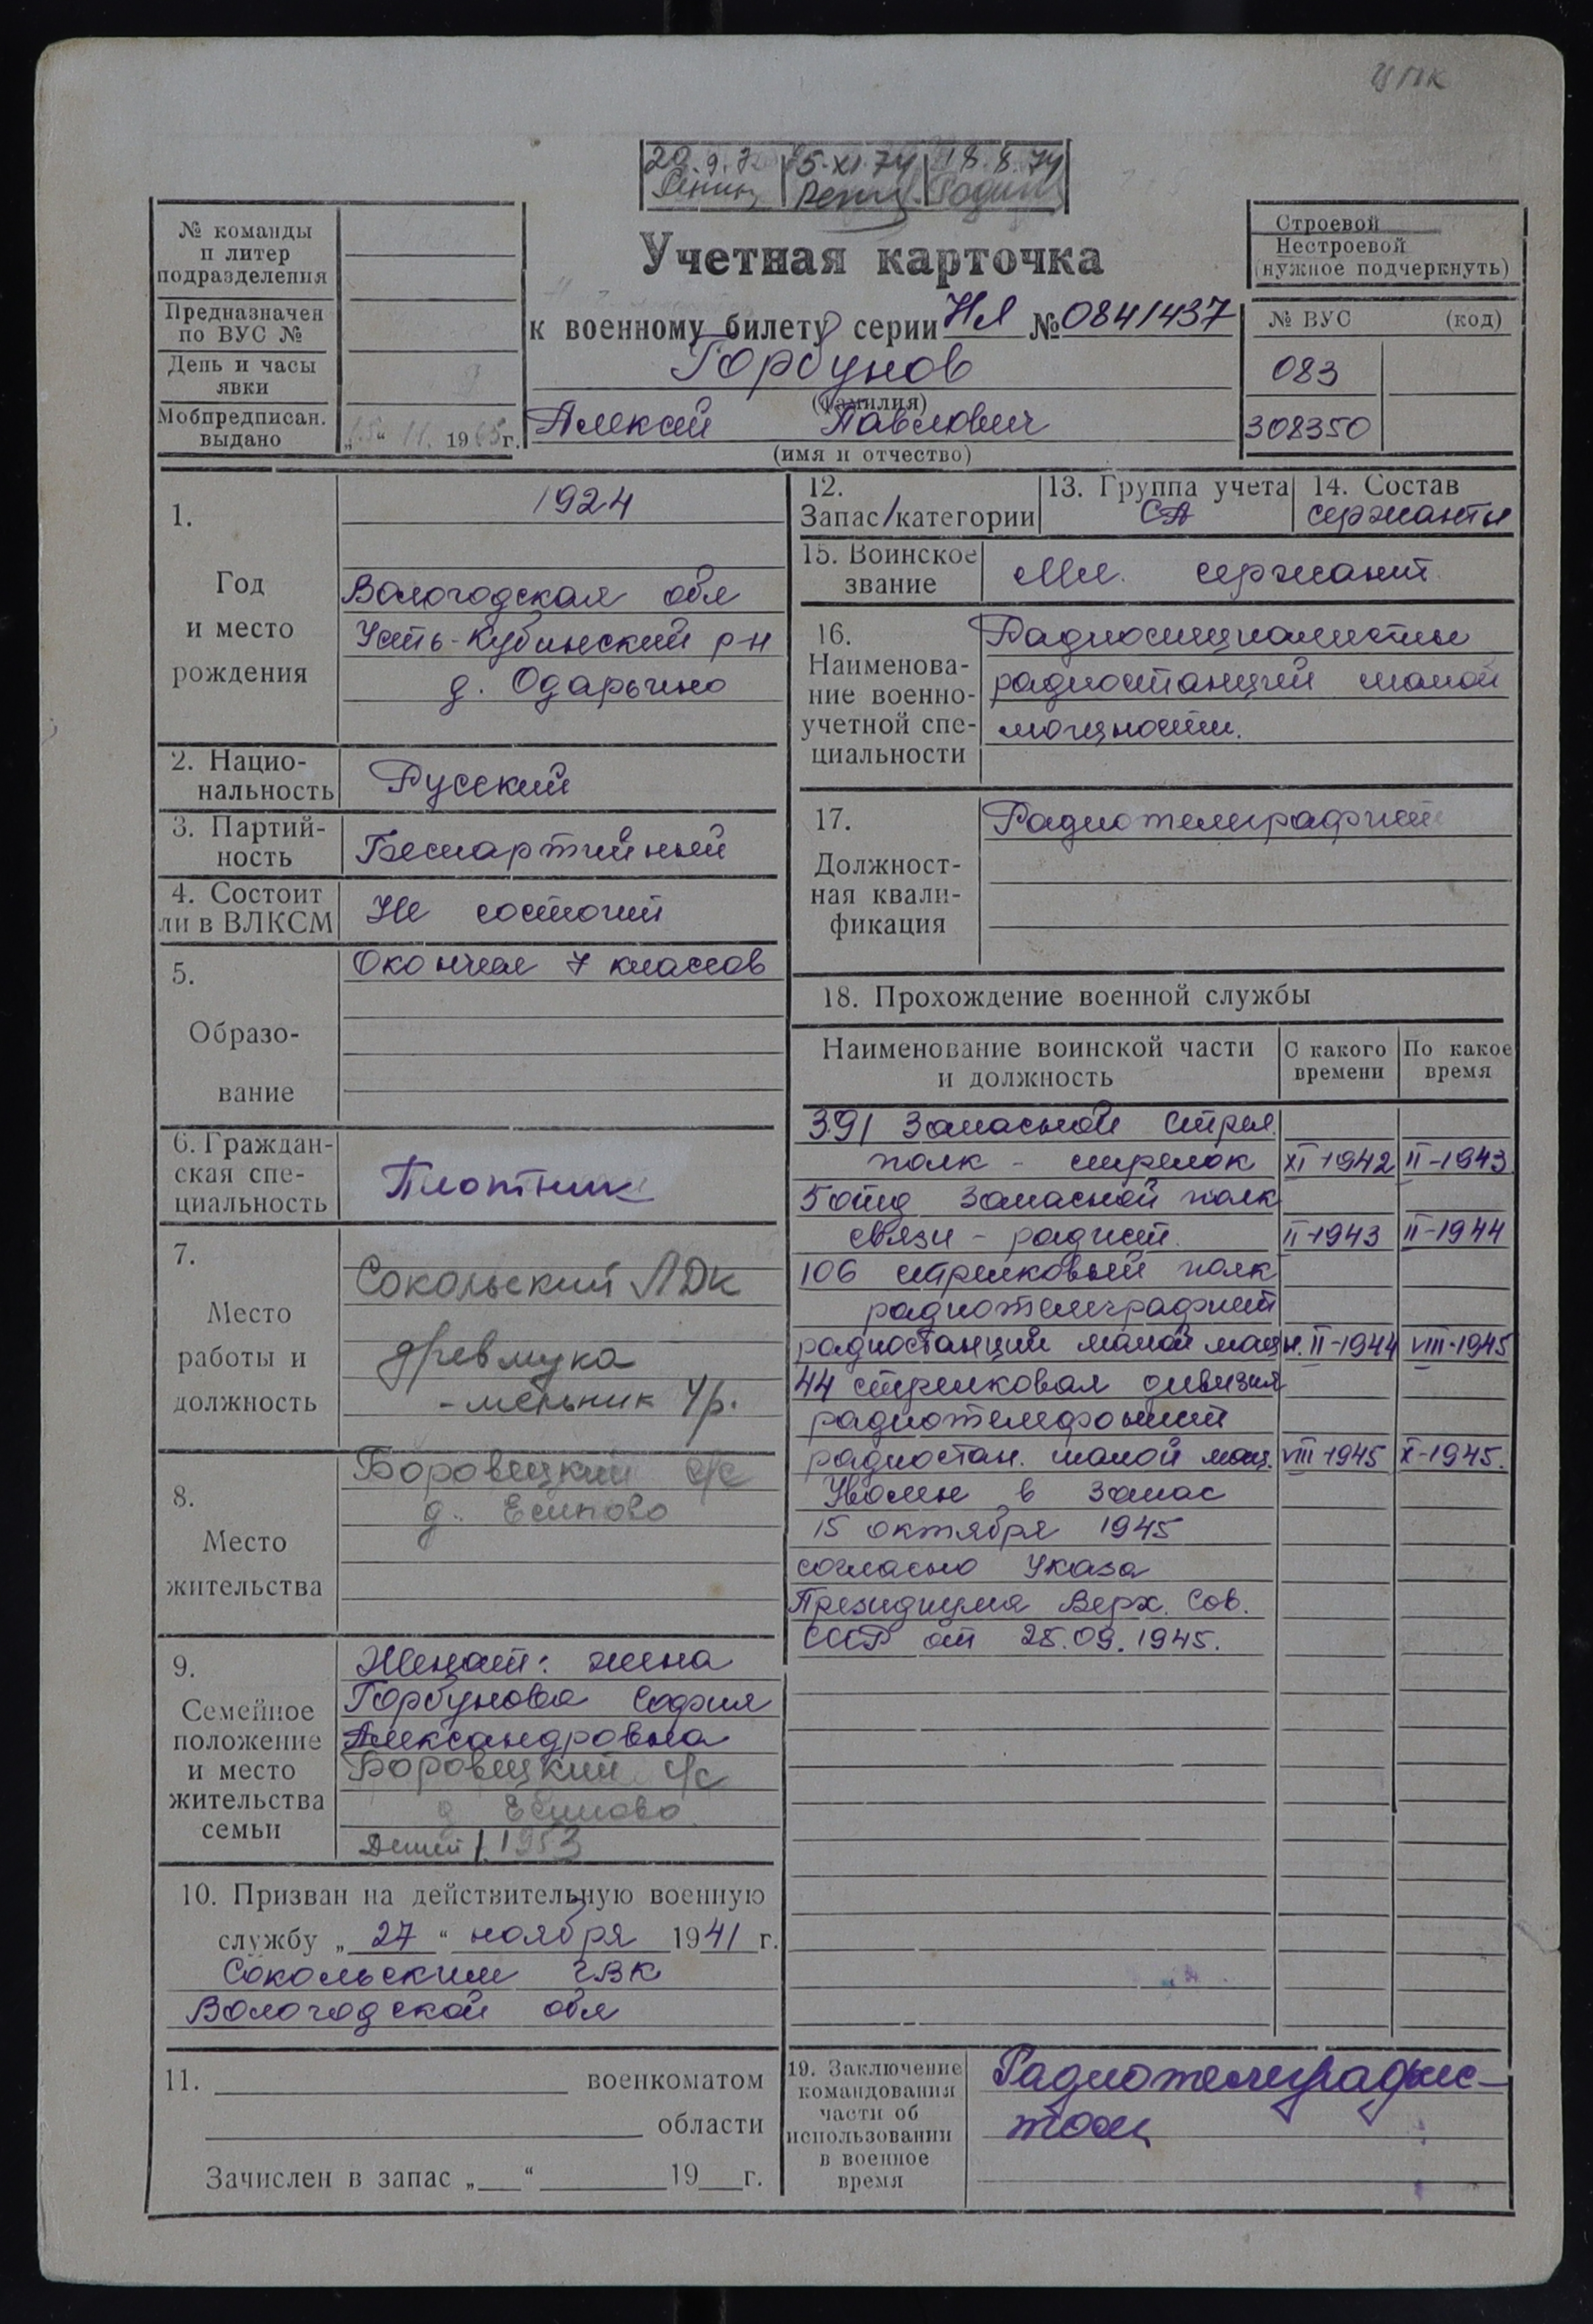 20.9.72 15.XI.74 18.8.74
Учетная карточка
к военному билету серии НЛ № 0841437
Горбунов
(фамилия)
Алексей Павлович
(имя и отчество)
№ команды
и литер
подразделения
Предназначен
по ВУС №
День и часы
явки
Мобпредписан.
выдано
„15“ 11. 1965г.
Строевой
Нестроевой
(нужное подчеркнуть)
№ ВУС (код)
083
308350
1.
Год
и место
рождения
1924
Вологодская обл
Усть-Кубинский р-н
д. Одарьино
2. Нацио-
нальность
Русский
3. Партий-
ность
Беспартийный
4. Состоит
ли в ВЛКСМ
Не состоит
5.
Образо-
вание
Окончил 7 классов
6. Граждан-
ская спе-
циальность
Плотник
7.
Место
работы и
должность
Сокольский ЛДК
древмука
- мельник 4р.
8.
Место
жительства
Боровецкий с/с
д. Есипово
9.
Семейное
положение
и место
жительства
семьи
Женат: жена
Горбунова София
Александровна
Боровецкий с/с
д Есипово
Детей 1. 1953
10. Призван на действительную военную
службу „27“ ноября 1941 г.
Сокольским ГВК
Вологодской обл
11. военкоматом
области
Зачислен в запас „ “ 19 г.
12.
Запас/категории
13. Группа учета
СА
14. Состав
сержанты
15. Воинское
звание
Мл. сержант
16.
Наименова-
ние военно-
учетной спе-
циальности
Радиоспециалисты
радиостанций малой
мощности.
17.
Должност-
ная квали-
фикация
Радиотелеграфист
18. Прохождение военной службы
Наименование воинской части
и должность
С какого
времени
По какое
время
391 Запасной Стрел.
полк - стрелок XI-1942 II-1943
5 отд Запасной полк
связи - радист. II-1943 II-1944
106 стрелковый полк
радиотелеграфист
радиостанции малой мощн. II-1944 VIII-1945
44 стрелковая дивизия
радиотелефонист
радиостан. малой мощ. VIII-1945 X-1945.
Уволен в запас
15 октября 1945
согласно Указа
Президиума Верх. Сов.
СССР от 25.09.1945.
19. Заключение
командования
части об
использовании
в военное
время
Радиотелеграфис-
том